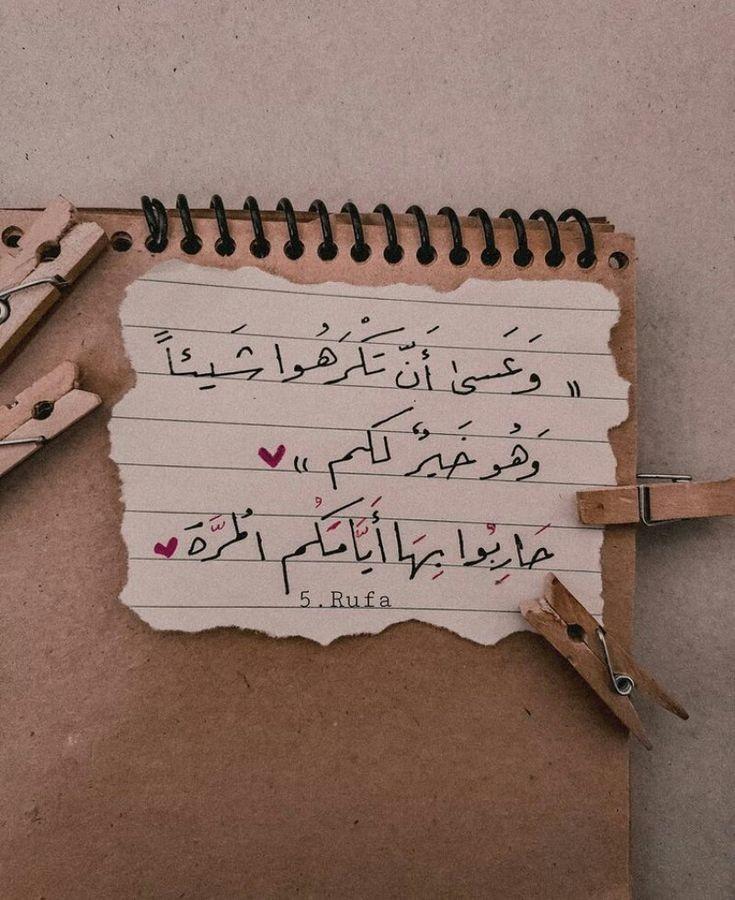 « وَعَسىٰ أَنّ تَكْرَهُوا شَيئاً
وَهُو خَيرٌ لكم » ♥
حَارِبُوا بِهَا أَيَّامَكُم المُرَّةَ ♥
5.Rufa